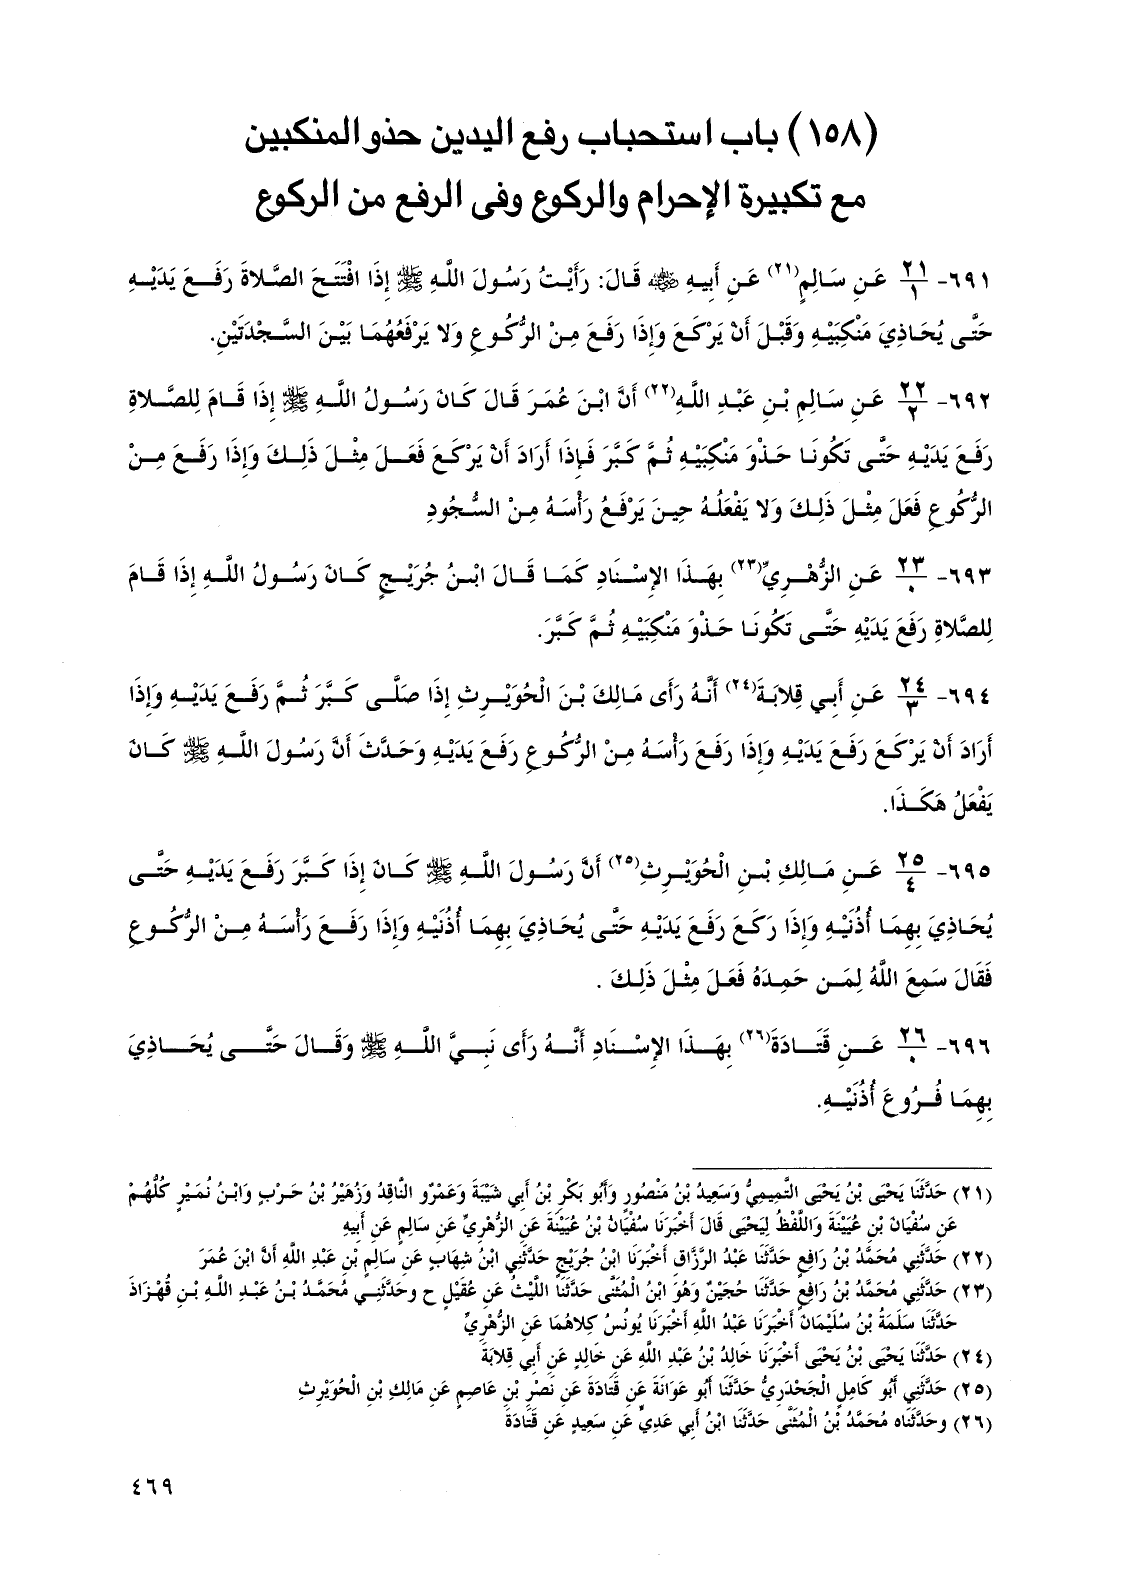 (١٥٨) باب استحباب رفع اليدين حذو المنكبين
مع تكبيرة الإحرام والركوع وفى الرفع من الركوع
٦٩١- ٢١/١ عَنِ سَالِمٍ(٢١) عَنِ أَبِيهِ ﷺ قَالَ: رَأَيْتُ رَسُولَ اللَّهِ ﷺ إِذَا افْتَتَحَ الصَّلاةَ رَفَعَ يَدَيْهِ
حَتَّى يُحَاذِيَ مَنْكِبَيْهِ وَقَبْلَ أَنْ يَرْكَعَ وَإِذَا رَفَعَ مِنْ الرُّكُوعِ وَلا يَرْفَعُهُمَا بَيْنَ السَّجْدَتَيْنِ.
٦٩٢- ٢٢/٢ عَنِ سَالِمِ بْنِ عَبْدِ اللَّهِ(٢٢) أَنَّ ابْنَ عُمَرَ قَالَ كَانَ رَسُولُ اللَّهِ ﷺ إِذَا قَامَ لِلصَّلاةِ
رَفَعَ يَدَيْهِ حَتَّى تَكُونَا حَذْوَ مَنْكِبَيْهِ ثُمَّ كَبَّرَ فَإِذَا أَرَادَ أَنْ يَرْكَعَ فَعَلَ مِثْلَ ذَلِكَ وَإِذَا رَفَعَ مِنْ
الرُّكُوعِ فَعَلَ مِثْلَ ذَلِكَ وَلا يَفْعَلُهُ حِينَ يَرْفَعُ رَأْسَهُ مِنْ السُّجُودِ
٦٩٣- ٢٣/٠ عَنِ الزُّهْرِيِّ(٢٣) بِهَذَا الإِسْنَادِ كَمَا قَالَ ابْنُ جُرَيْجٍ كَانَ رَسُولُ اللَّهِ إِذَا قَامَ
لِلصَّلاةِ رَفَعَ يَدَيْهِ حَتَّى تَكُونَا حَذْوَ مَنْكِبَيْهِ ثُمَّ كَبَّرَ.
٦٩٤- ٢٤/٣ عَنِ أَبِي قِلابَةَ(٢٤) أَنَّهُ رَأَى مَالِكَ بْنَ الْحُوَيْرِثِ إِذَا صَلَّى كَبَّرَ ثُمَّ رَفَعَ يَدَيْهِ وَإِذَا
أَرَادَ أَنْ يَرْكَعَ رَفَعَ يَدَيْهِ وَإِذَا رَفَعَ رَأْسَهُ مِنْ الرُّكُوعِ رَفَعَ يَدَيْهِ وَحَدَّثَ أَنَّ رَسُولَ اللَّهِ ﷺ كَانَ
يَفْعَلُ هَكَذَا.
٦٩٥- ٢٥/٤ عَنِ مَالِكِ بْنِ الْحُوَيْرِثِ(٢٥) أَنَّ رَسُولَ اللَّهِ ﷺ كَانَ إِذَا كَبَّرَ رَفَعَ يَدَيْهِ حَتَّى
يُحَاذِيَ بِهِمَا أُذُنَيْهِ وَإِذَا رَكَعَ رَفَعَ يَدَيْهِ حَتَّى يُحَاذِيَ بِهِمَا أُذُنَيْهِ وَإِذَا رَفَعَ رَأْسَهُ مِنْ الرُّكُوعِ
فَقَالَ سَمِعَ اللَّهُ لِمَن حَمِدَهُ فَعَلَ مِثْلَ ذَلِكَ .
٦٩٦- ٢٦/٠ عَنِ قَتَادَةَ(٢٦) بِهَذَا الإِسْنَادِ أَنَّهُ رَأَى نَبِيَّ اللَّهِ ﷺ وَقَالَ حَتَّى يُحَاذِيَ
بِهِمَا فُرُوعَ أُذُنَيْهِ.
(٢١) حَدَّثَنَا يَحْيَى بْنُ يَحْيَى التَّمِيمِيُّ وَسَعِيدُ بْنُ مَنْصُورٍ وَأَبُو بَكْرِ بْنُ أَبِي شَيْبَةَ وَعَمْرٌو النَّاقِدُ وَزُهَيْرُ بْنُ حَرْبٍ وَابْنُ نُمَيْرٍ كُلُّهُمْ
عَنِ سُفْيَانَ بْنِ عُيَيْنَةَ وَاللَّفْظُ لِيَحْيَى قَالَ أَخْبَرَنَا سُفْيَانُ بْنُ عُيَيْنَةَ عَنِ الزُّهْرِيِّ عَنِ سَالِمٍ عَنِ أَبِيهِ
(٢٢) حَدَّثَنِي مُحَمَّدُ بْنُ رَافِعٍ حَدَّثَنَا عَبْدُ الرَّزَّاقِ أَخْبَرَنَا ابْنُ جُرَيْجٍ حَدَّثَنِي ابْنُ شِهَابٍ عَن سَالِمِ بْنِ عَبْدِ اللَّهِ أَنَّ ابْنَ عُمَرَ
(٢٣) حَدَّثَنِي مُحَمَّدُ بْنُ رَافِعٍ حَدَّثَنَا حُجَيْنٌ وَهُوَ ابْنُ الْمُثَنَّى حَدَّثَنَا اللَّيْثُ عَنِ عُقَيْلٍ ح وحَدَّثَنِي مُحَمَّدُ بْنُ عَبْدِ اللَّهِ بْنِ قُهْزَاذَ
حَدَّثَنَا سَلَمَةُ بْنُ سُلَيْمَانَ أَخْبَرَنَا عَبْدُ اللَّهِ أَخْبَرَنَا يُونُسُ كِلاهُمَا عَنِ الزُّهْرِيِّ
(٢٤) حَدَّثَنَا يَحْيَى بْنُ يَحْيَى أَخْبَرَنَا خَالِدُ بْنُ عَبْدِ اللَّهِ عَنِ خَالِدٍ عَن أَبِي قِلابَةَ
(٢٥) حَدَّثَنِي أَبُو كَامِلٍ الْجَحْدَرِيُّ حَدَّثَنَا أَبُو عَوَانَةَ عَنِ قَتَادَةَ عَن نَصْرِ بْنِ عَاصِمٍ عَن مَالِكِ بْنِ الْحُوَيْرِثِ
(٢٦) وحَدَّثَنَاه مُحَمَّدُ بْنُ الْمُثَنَّى حَدَّثَنَا ابْنُ أَبِي عَدِيٍّ عَن سَعِيدٍ عَنِ قَتَادَةَ
٤٦٩